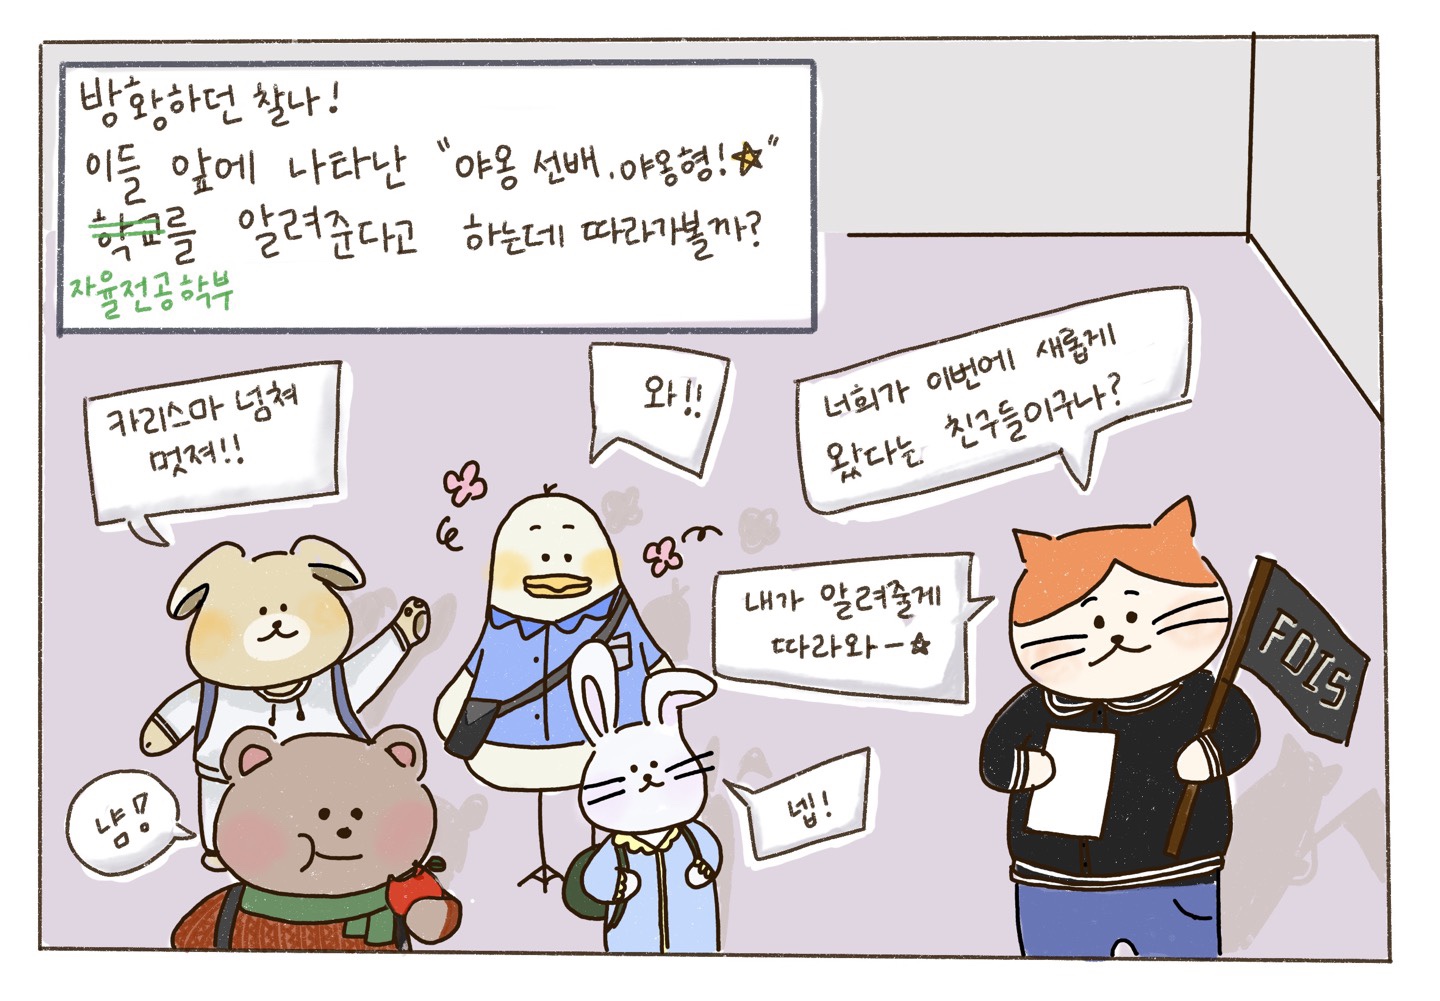 방황하던 찰나!
이들 앞에 나타난 "야옹 선배, 야옹형!☆"
학교를 알려준다고 하는데 따라가볼까?
자율전공학부
카리스마 넘쳐
멋져!!
와!!
너희가 이번에 새롭게
왔다는 친구들이구나?
내가 알려줄게
따라와-☆
FOIS
냠냠
넵!